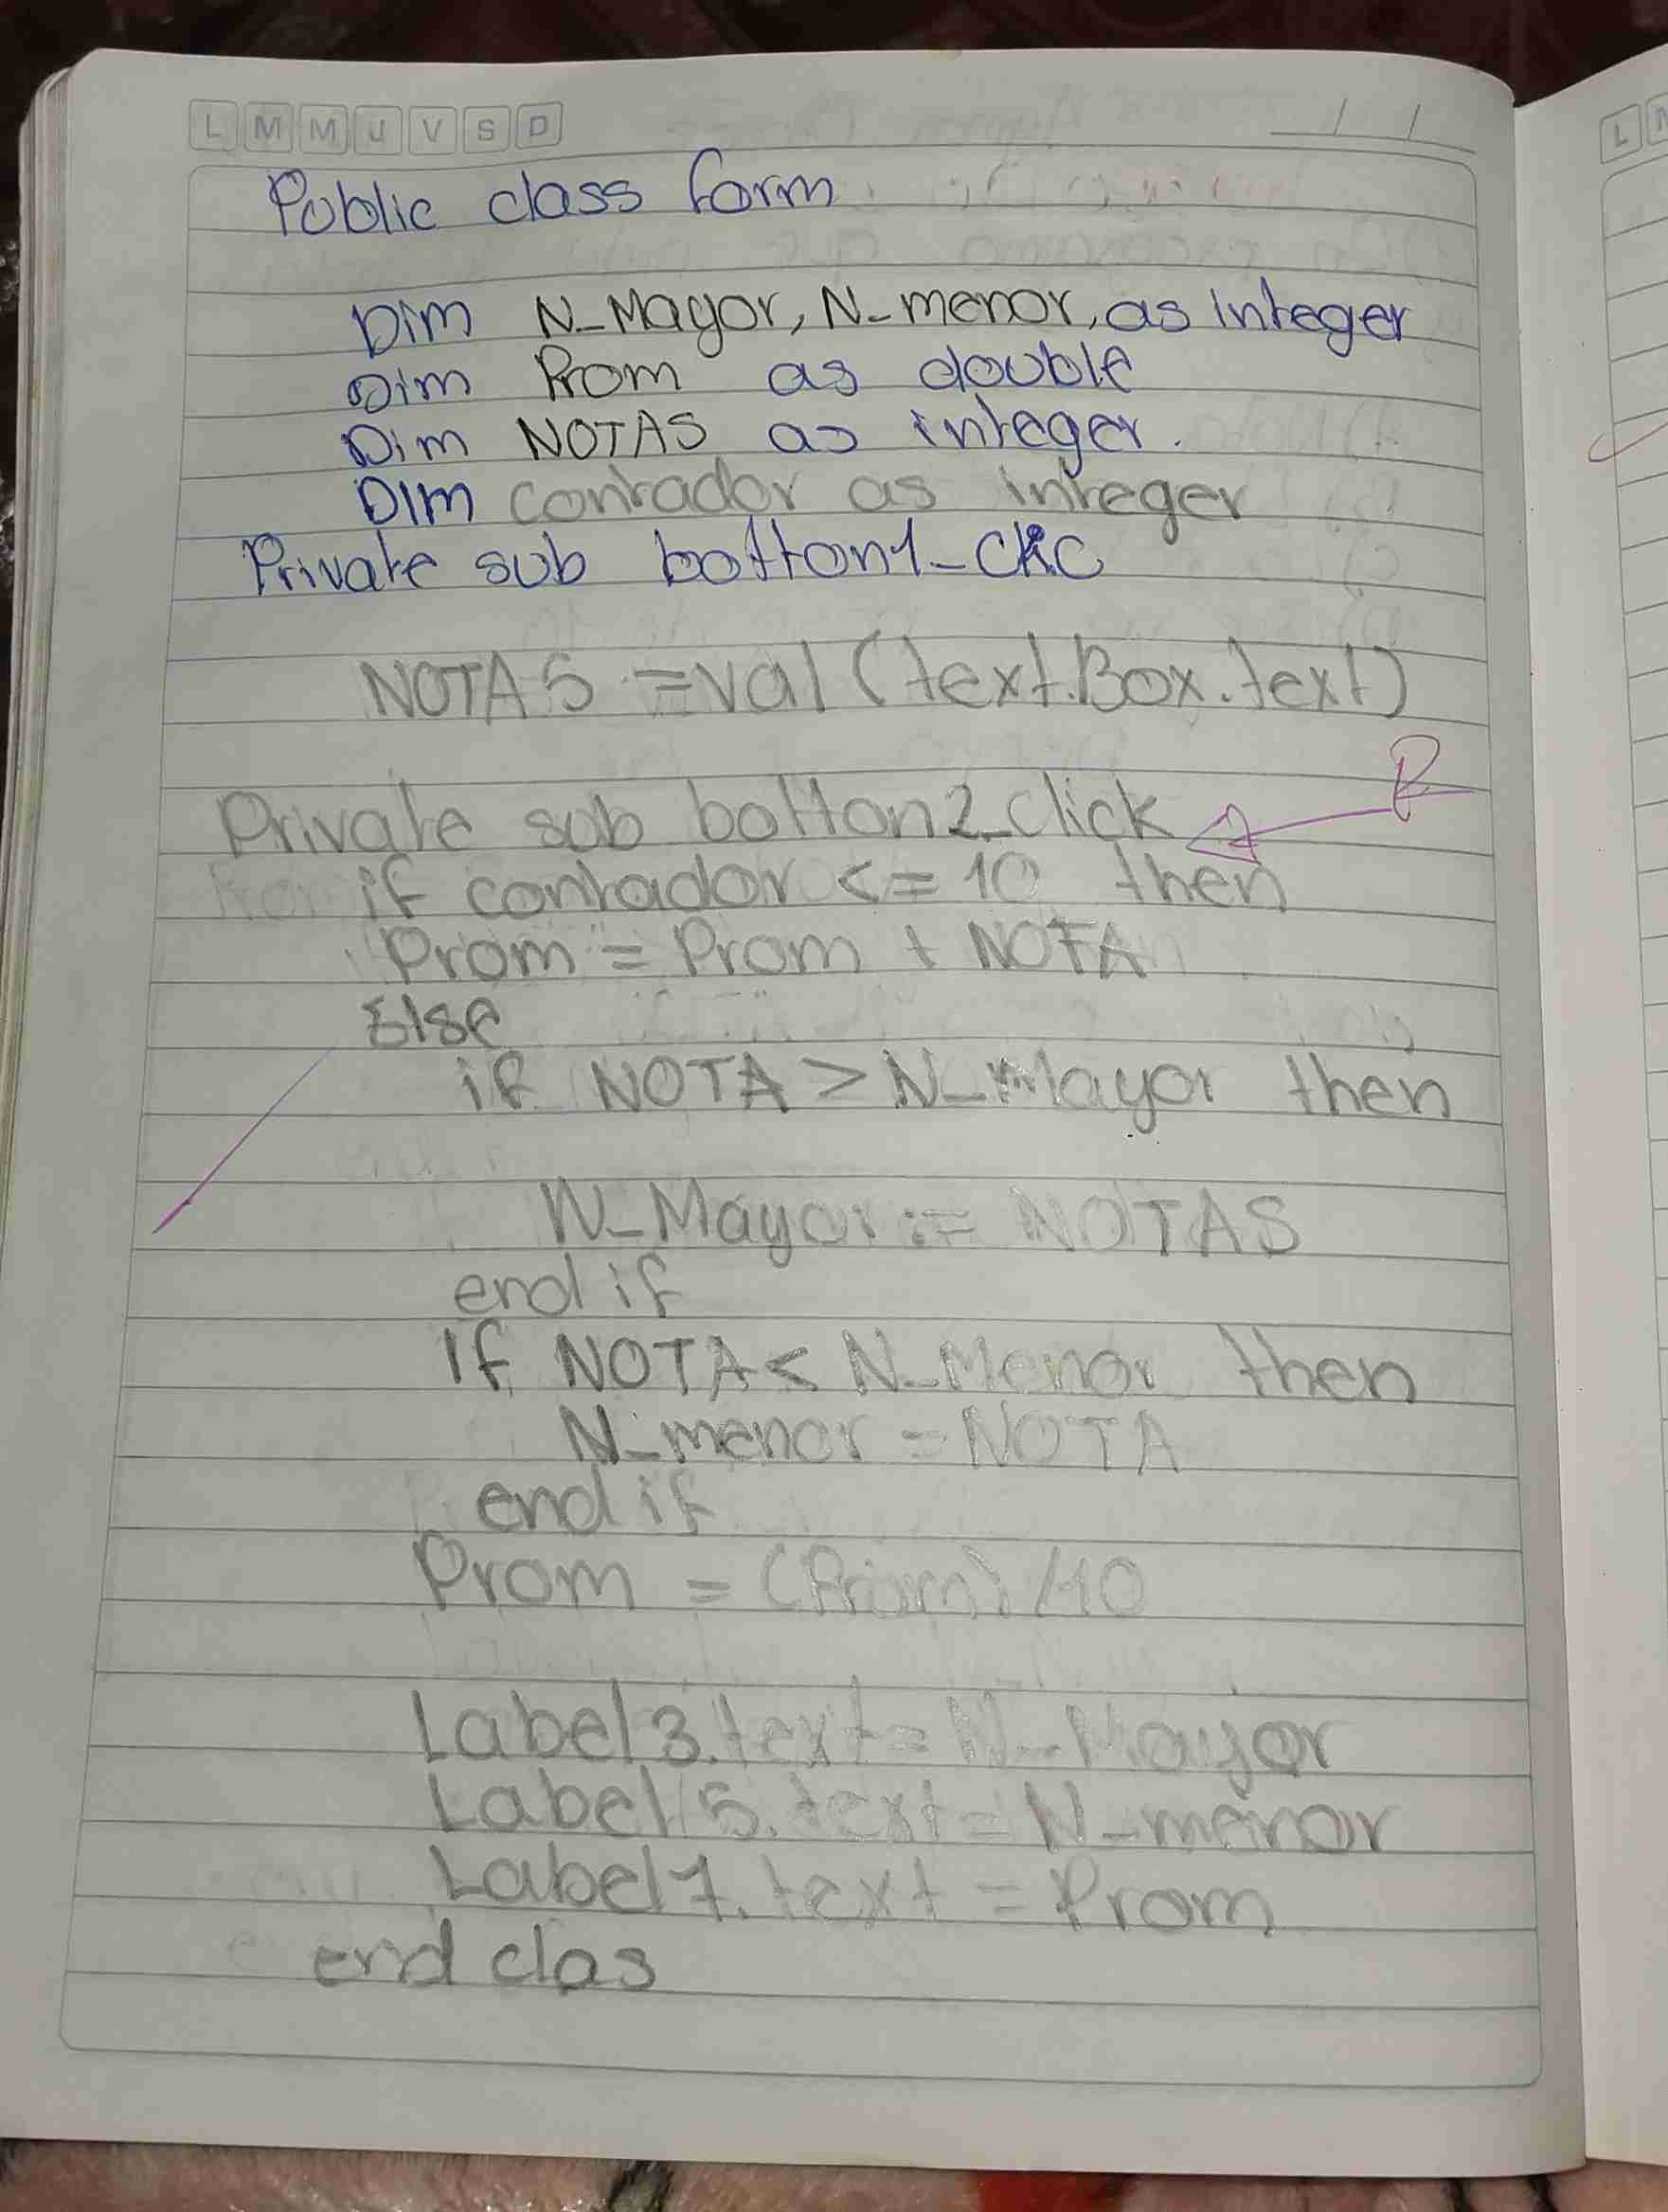 L M M J V S D
Public class form
Dim N_Mayor, N_menor, as integer
Dim Prom as double
Dim NOTAS as integer.
DIM contador as integer
Private sub botton1_clic
NOTAS = val (text.Box.text)
R
Private sub botton2_click
if contador <= 10 then
Prom = Prom + NOTA
Else
if NOTA > N_Mayor then
N_Mayor := NOTAS
end if
If NOTA < N_Menor then
N_menor = NOTA
end if
Prom = (Prom) /10
Label3.text = N_Mayor
Label5.text = N_menor
Label7.text = Prom
end clas